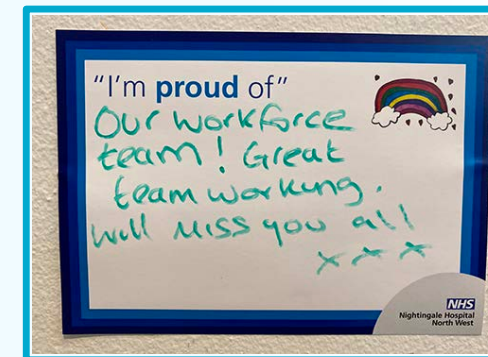 "I'm proud of"
Our workforce
team! Great
team working.
Will miss you all
x x x
NHS
Nightingale Hospital
North West